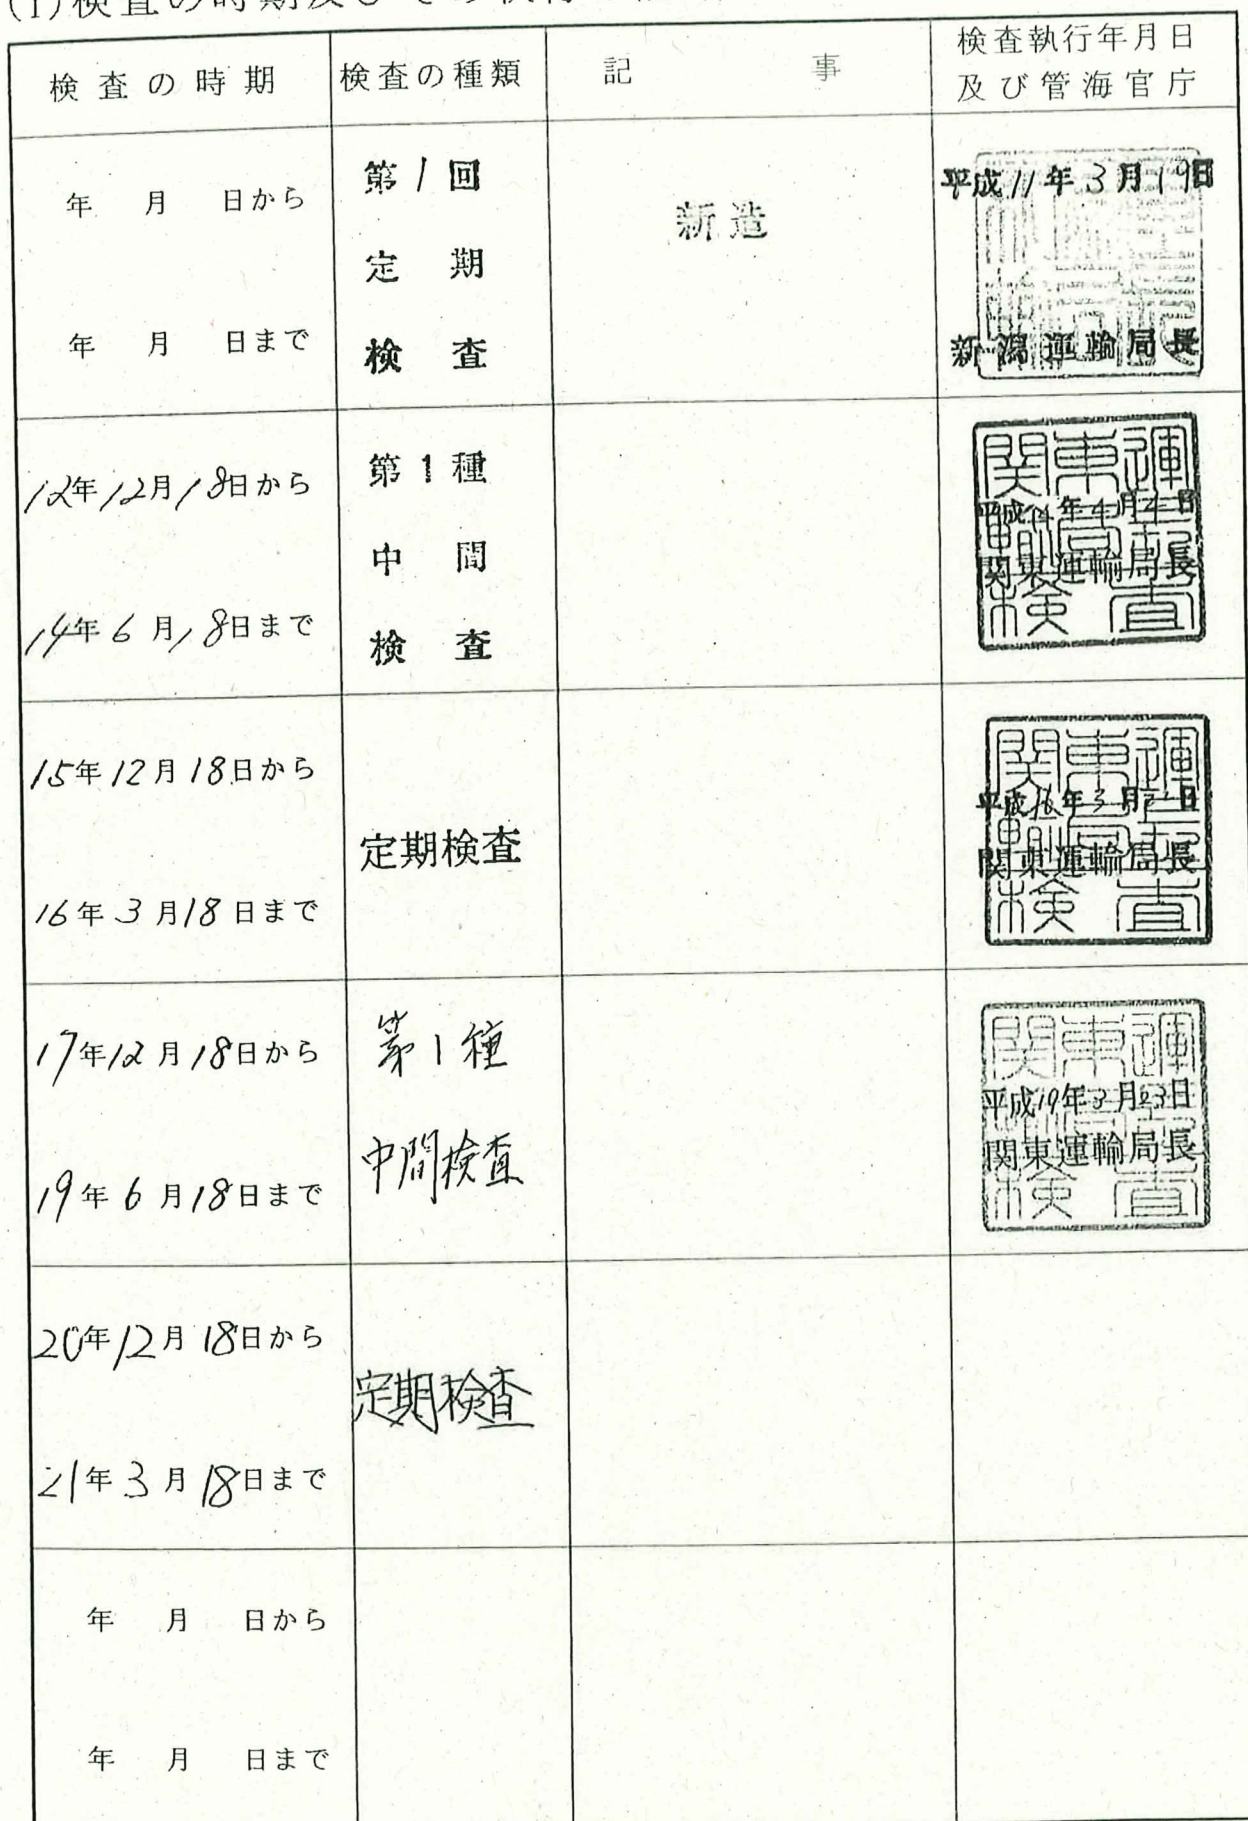 (1)検査の時期及びその
検査の時期 検査の種類 記事 検査執行年月日
及び管海官庁
年 月 日から
年 月 日まで
第1回
定期
検査
新造
平成11年3月19日
新潟運輸局長
12年12月18日から
14年6月18日まで
第1種
中間
検査
関東運
平成14年4月2日
関東運輸局長
検査
15年12月18日から
16年3月18日まで
定期検査
関東運
平成16年3月 日
関東運輸局長
検査
17年12月18日から
19年6月18日まで
第1種
中間検査
関東運
平成19年3月23日
関東運輸局長
検査
20年12月18日から
21年3月18日まで
定期検査
年 月 日から
年 月 日まで